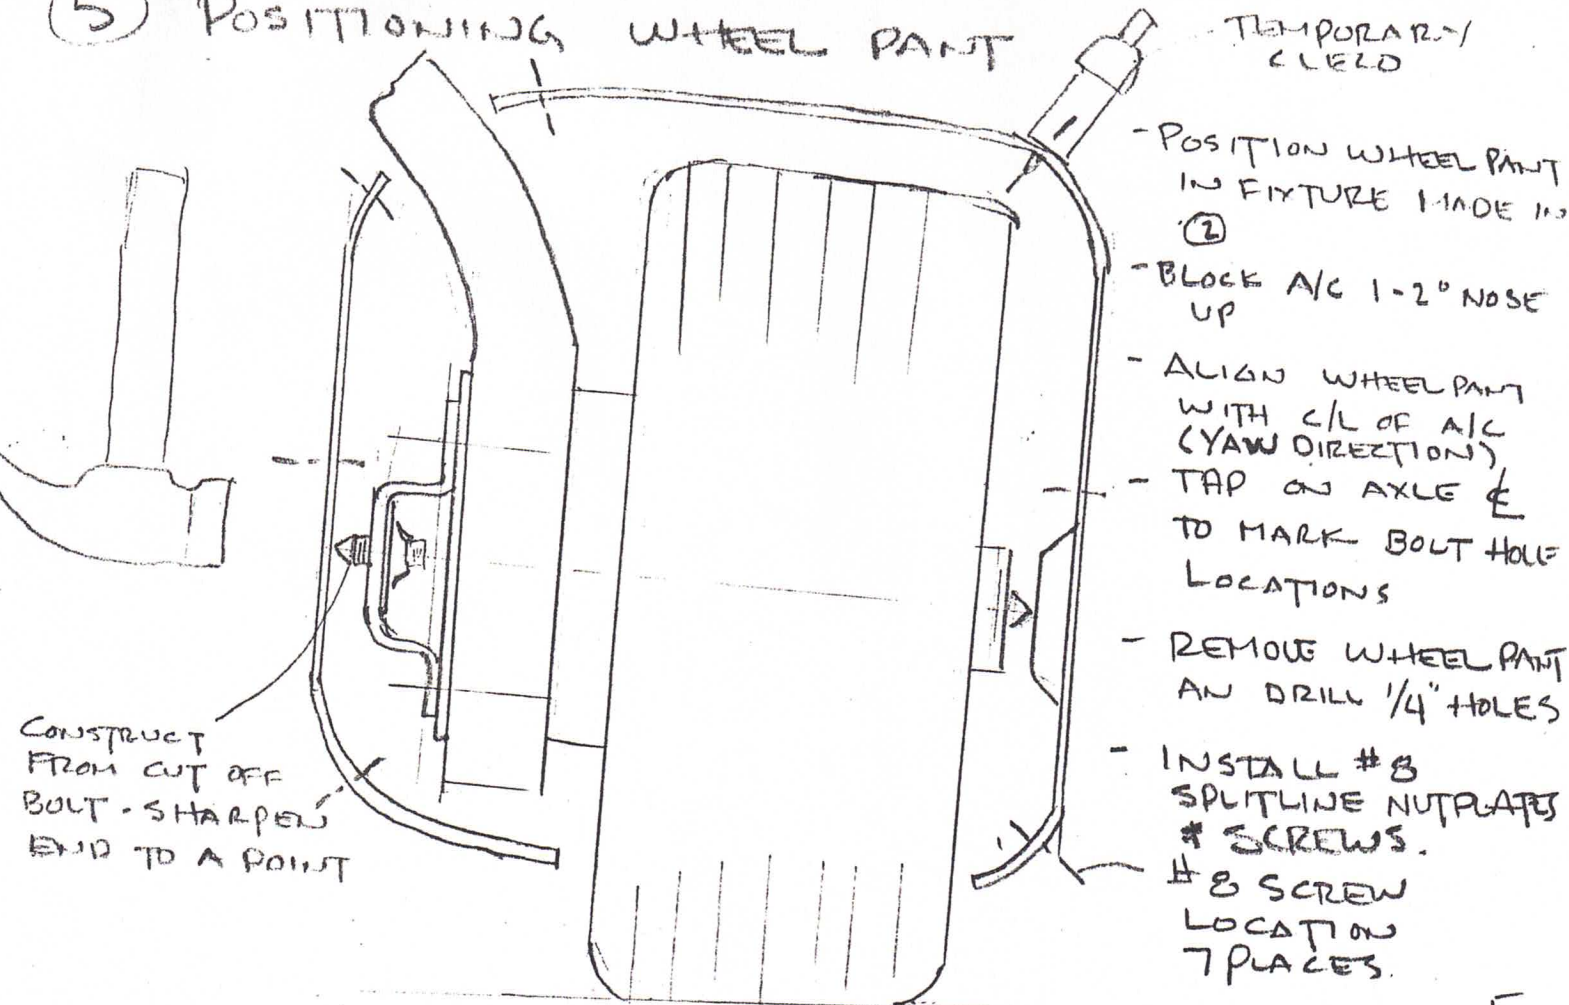 5 POSITIONING WHEEL PANT
TEMPORARY
CLECO
- POSITION WHEEL PANT
IN FIXTURE MADE IN
2
- BLOCK A/C 1-2° NOSE
UP
- ALIGN WHEEL PANT
WITH C/L OF A/C
(YAW DIRECTION)
- TAP ON AXLE ℄
TO MARK BOLT HOLE
LOCATIONS
- REMOVE WHEEL PANT
AN DRILL 1/4" HOLES
- INSTALL #8
SPLITLINE NUTPLATES
& SCREWS.
#8 SCREW
LOCATION
7 PLACES.
CONSTRUCT
FROM CUT OFF
BOLT - SHARPEN
END TO A POINT